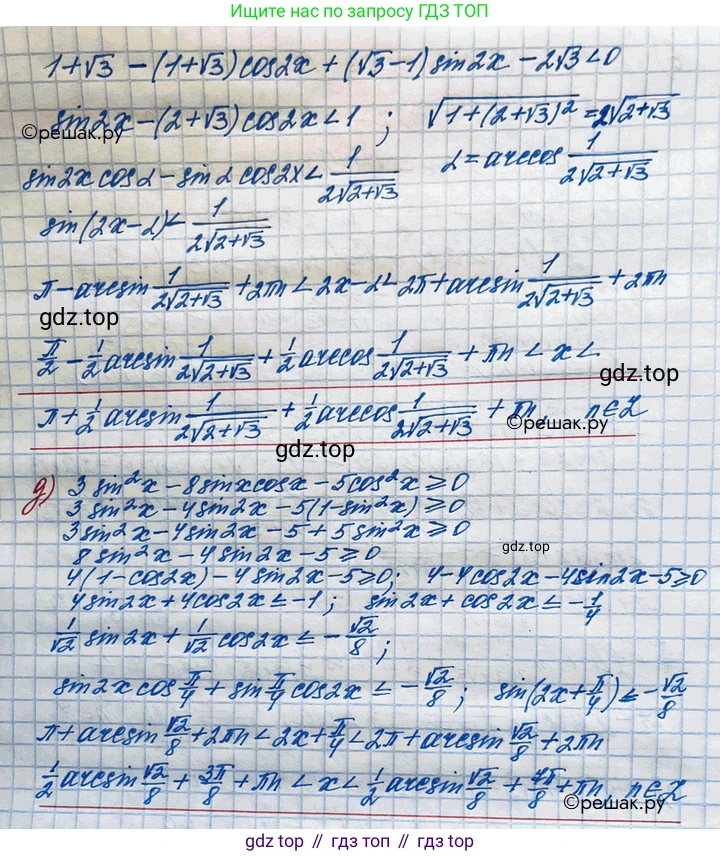 Ищите нас по запросу ГДЗ ТОП
1+√3 - (1+√3)cos2x + (√3-1)sin2x - 2√3 < 0
sin2x - (2+√3)cos2x < 1 ; √(1+(2+√3)²) = 2√(2+√3)
©решак.ру
sin2x cosα - sinα cos2x < 1/(2√(2+√3)) α = arccos 1/(2√(2+√3))
sin(2x-α) < 1/(2√(2+√3))
π - arcsin 1/(2√(2+√3)) + 2πn < 2x - α < 2π + arcsin 1/(2√(2+√3)) + 2πn
gdz.top
π/2 - 1/2 arcsin 1/(2√(2+√3)) + 1/2 arccos 1/(2√(2+√3)) + πn < x <
gdz.top
π + 1/2 arcsin 1/(2√(2+√3)) + 1/2 arccos 1/(2√(2+√3)) + πn, n∈Z
©решак.ру
gdz.top
g) 3sin²x - 8sinxcosx - 5cos²x ≥ 0
3sin²x - 4sin2x - 5(1-sin²x) ≥ 0
3sin²x - 4sin2x - 5 + 5sin²x ≥ 0
©решак.ру
8sin²x - 4sin2x - 5 ≥ 0
4(1-cos2x) - 4sin2x - 5 ≥ 0; 4-4cos2x-4sin2x-5 ≥ 0
4sin2x + 4cos2x ≤ -1 ; sin2x + cos2x ≤ -1/4
1/√2 sin2x + 1/√2 cos2x ≤ -√2/8 ;
sin2x cos π/4 + sin π/4 cos2x ≤ -√2/8 ; sin(2x+π/4) ≤ -√2/8
π + arcsin √2/8 + 2πn < 2x + π/4 < 2π + arcsin √2/8 + 2πn
1/2 arcsin √2/8 + 3π/8 + πn < x < 1/2 arcsin √2/8 + 7π/8 + πn, n∈Z
©решак.ру
gdz top // гдз топ // gdz top